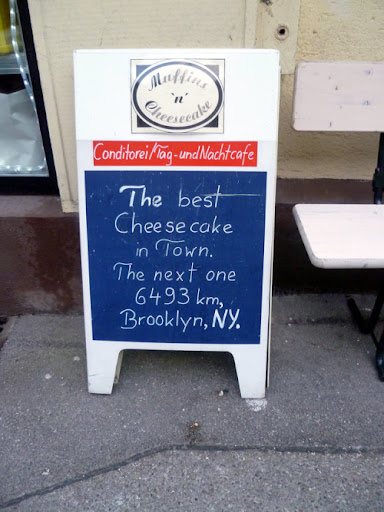 Muffins
'n'
Cheesecake
Conditorei/Tag-undNachtcafe
The best
Cheesecake
in Town.
The next one
6493 km,
Brooklyn, NY.